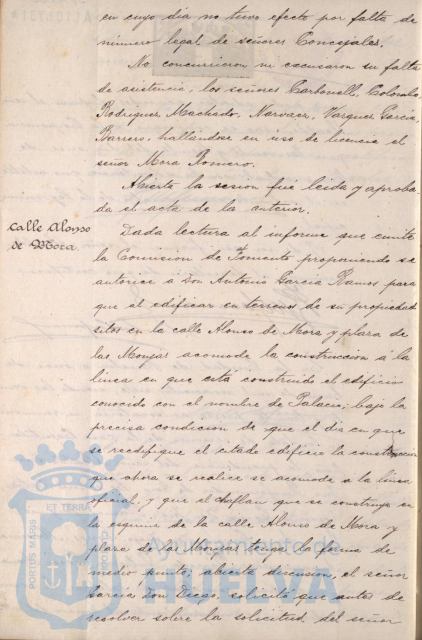 en cuyo dia no tuvo efecto por falta de
número legal de señores Concejales.
No concurrieron ni excusaron su falta
de asistencia, los señores Carbonell, Coronalo,
Rodriguez, Machado, Narvaez, Vazquez Garcia,
Barrero, hallándose en uso de licencia el
señor Mora Romero.
Abierta la sesion fué leida y aproba
da el acta de la anterior.
calle Alonso
de Mora.
Dada lectura al informe que emite
la Comision de Fomento proponiendo se
autorice á Don Antonio Garcia Ramos para
que al edificar en terrenos de su propiedad
sitos en la calle Alonso de Mora y plaza de
las Monjas acomode la construccion á la
linea en que está construido el edificio
conocido con el nombre de Palacio; bajo la
precisa condicion de que el dia en que
se reedifique el citado edificio la construccion
que ahora se realice se acomode a la linea
oficial; y que el chaflan que se construya en
la esquina de la calle Alonso de Mora y
plaza de las Monjas tenga la forma de
medio punto; abierta discusion, el señor
Garcia Don Diego, solicitó que antes de
resolver sobre la solicitud del señor
PORTUS MARIS
ET TERRÆ
CUSTODIA
Ayuntamiento de
HUELVA